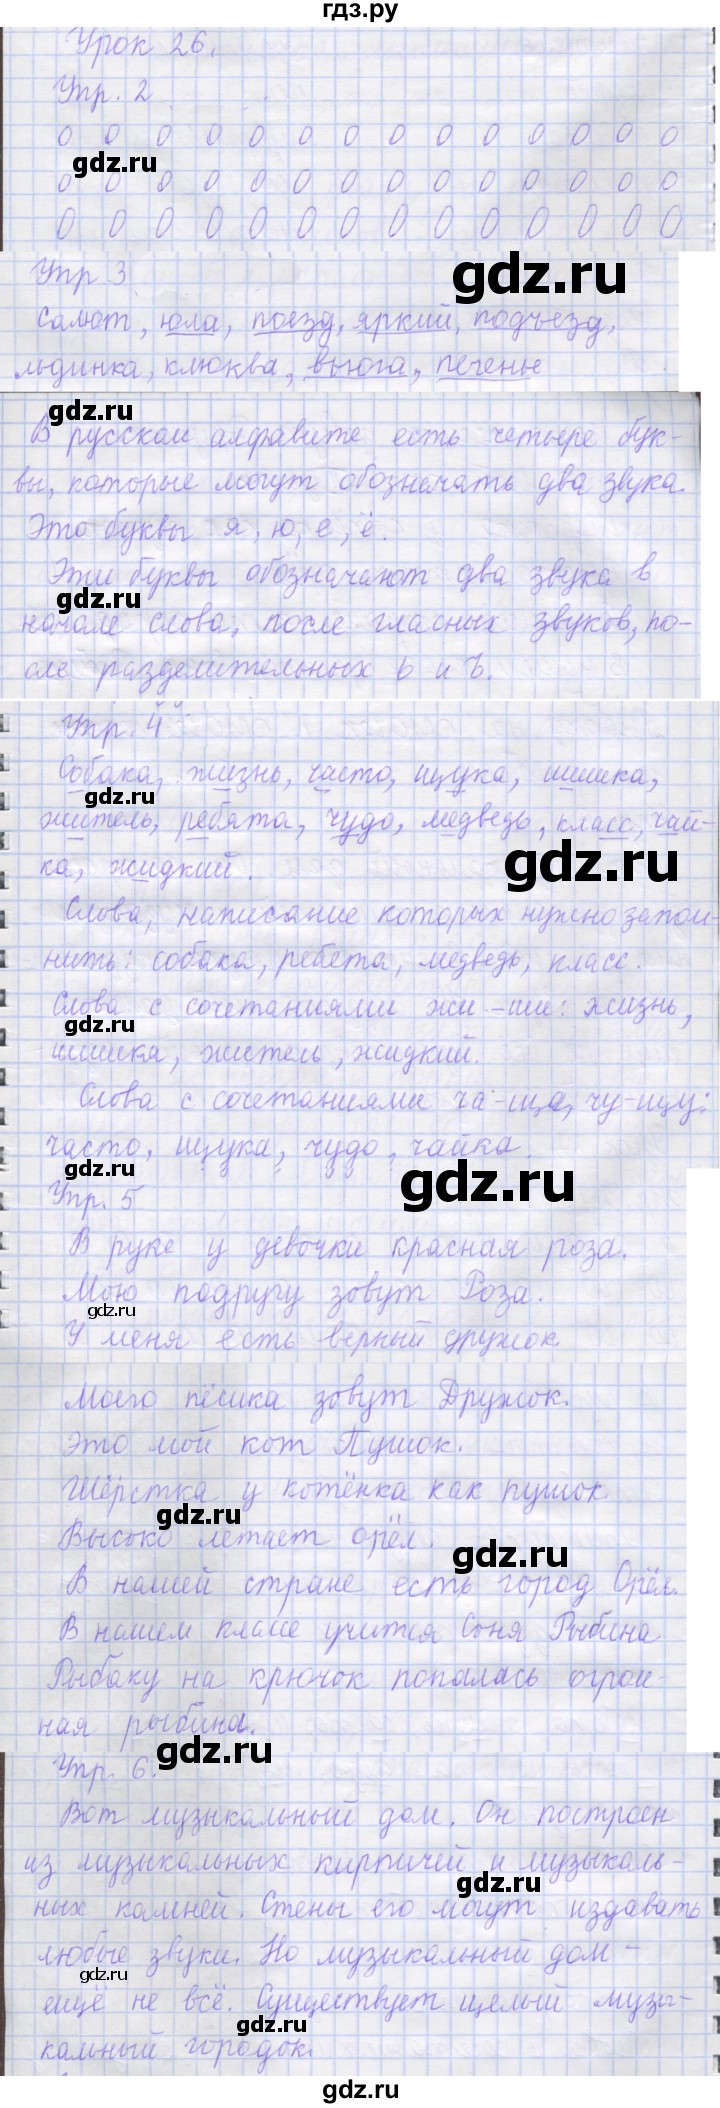 гдз.ру
Урок 26.
Упр. 2
о о о о о о о о о о о о о о
gdz.ru
о о о о о о о о о о о о о о
О О О О О О О О О О О О О О
gdz.ru
Упр 3
Салют, юла, поезд, яркий, подъезд,
льдинка, клюква, вьюга, печенье
gdz.ru
В русском алфавите есть четыре бук-
вы, которые могут обозначать два звука.
Это буквы я, ю, е, ё.
Эти буквы обозначают два звука в
gdz.ru
начале слова, после гласных звуков, по-
сле разделительных ь и ъ.
Упр. 4
Собака, жизнь, часто, щука, шишка,
gdz.ru
житель, ребята, чудо, медведь, класс, чай-
gdz.ru
ка, жидкий.
Слова, написание которых нужно запом
нить: собака, ребята, медведь, класс.
Слова с сочетаниями жи -ши: жизнь,
gdz.ru
шишка, житель, жидкий.
Слова с сочетаниями ча-ща, чу-щу:
часто, щука, чудо, чайка
gdz.ru
gdz.ru
Упр. 5
В руке у девочки красная роза.
Мою подругу зовут Роза.
gdz.ru
У меня есть верный дружок
Моего пёсика зовут Дружок.
Это мой кот Пушок.
Шёрстка у котёнка как пушок
gdz.ru
Высоко летает орёл.
gdz.ru
В нашей стране есть город Орёл.
В нашем классе учится Соня Рыбина
Рыбаку на крючок попалась огром-
ная рыбина.
gdz.ru
Упр. 6.
Вот музыкальный дом. Он построен
из музыкальных кирпичей и музыкаль-
gdz.ru
ных камней. Стены его могут издавать
любые звуки. Но музыкальный дом -
gdz.ru
ещё не всё. Существует целый музы-
gdz.ru
кальный городок.
gdz.ru